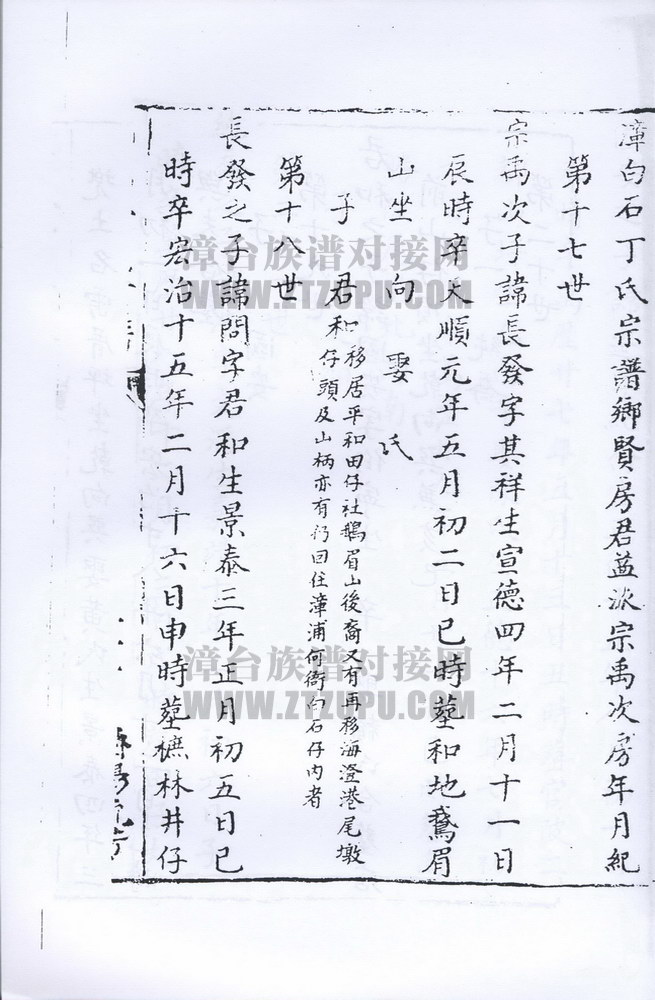 漳白石丁氏宗譜鄉賢房君益派宗禹次房年月紀
第十七世
宗禹次子諱長發字其祥生宣德四年二月十一日
辰時卒天順元年五月初二日巳時墓和地鵞眉
山坐 向 娶 氏
子 君和 移居平和田仔社鵝眉山後裔又有再移海澄港尾墩
仔頭及山柄亦有仍回住漳浦何衙白石仔內者
第十八世
長發之子諱問字君和生景泰三年正月初五日巳
時卒宏治十五年二月十六日申時墓樜林井仔
漳台族谱对接网
WWW.ZTZUPU.COM
漳台族谱对接网
WWW.ZTZUPU.COM